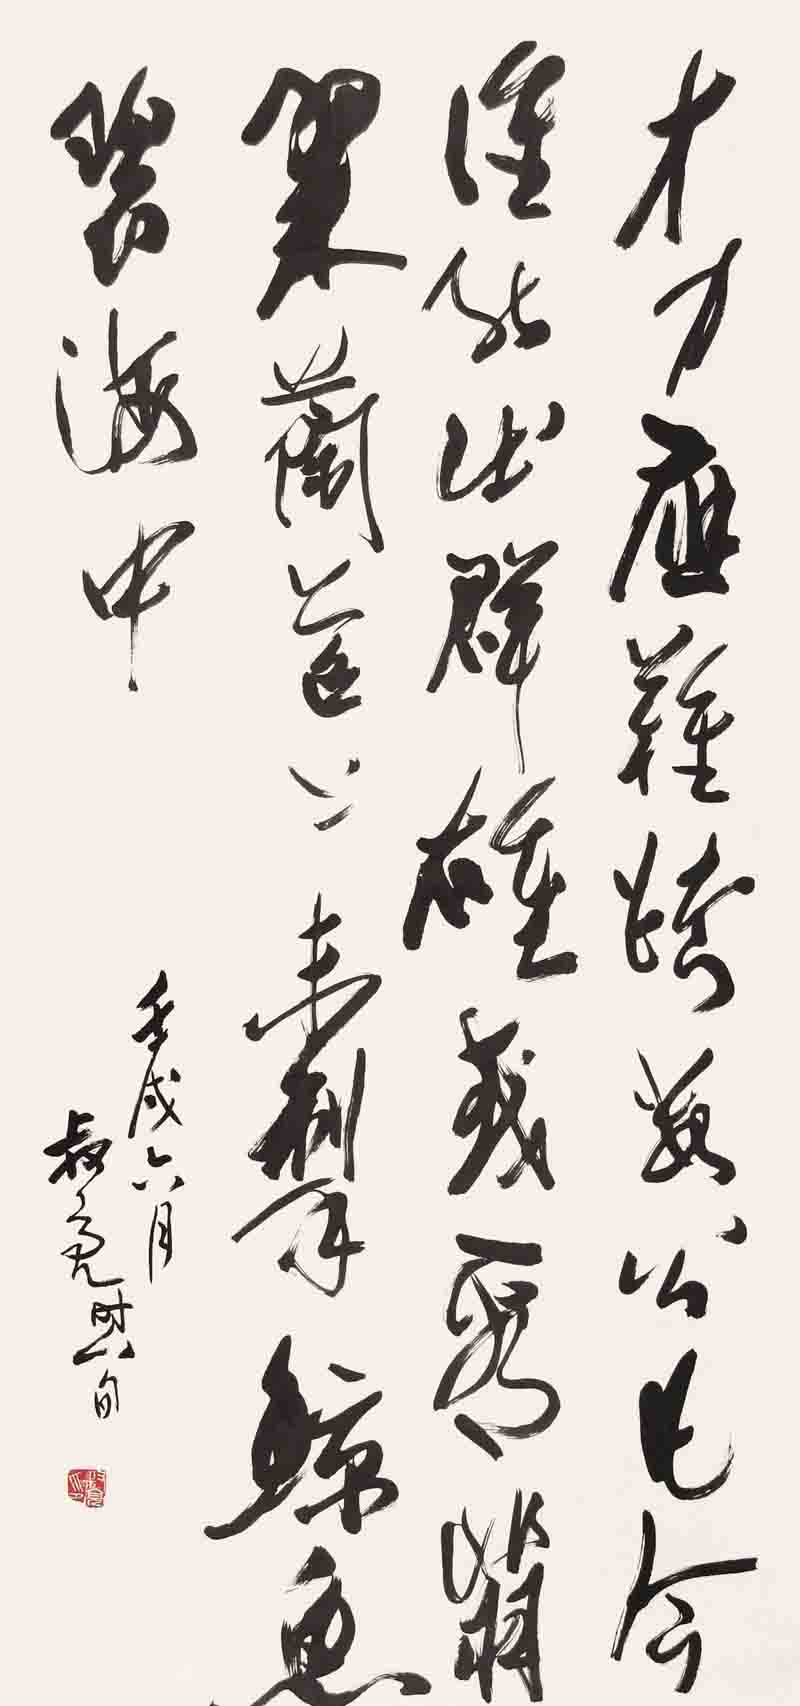 才力應難跨數公凡今
誰能出群雄或看翡
翠蘭苕上未掣鯨魚
碧海中
壬戌六月
叔亮時八旬